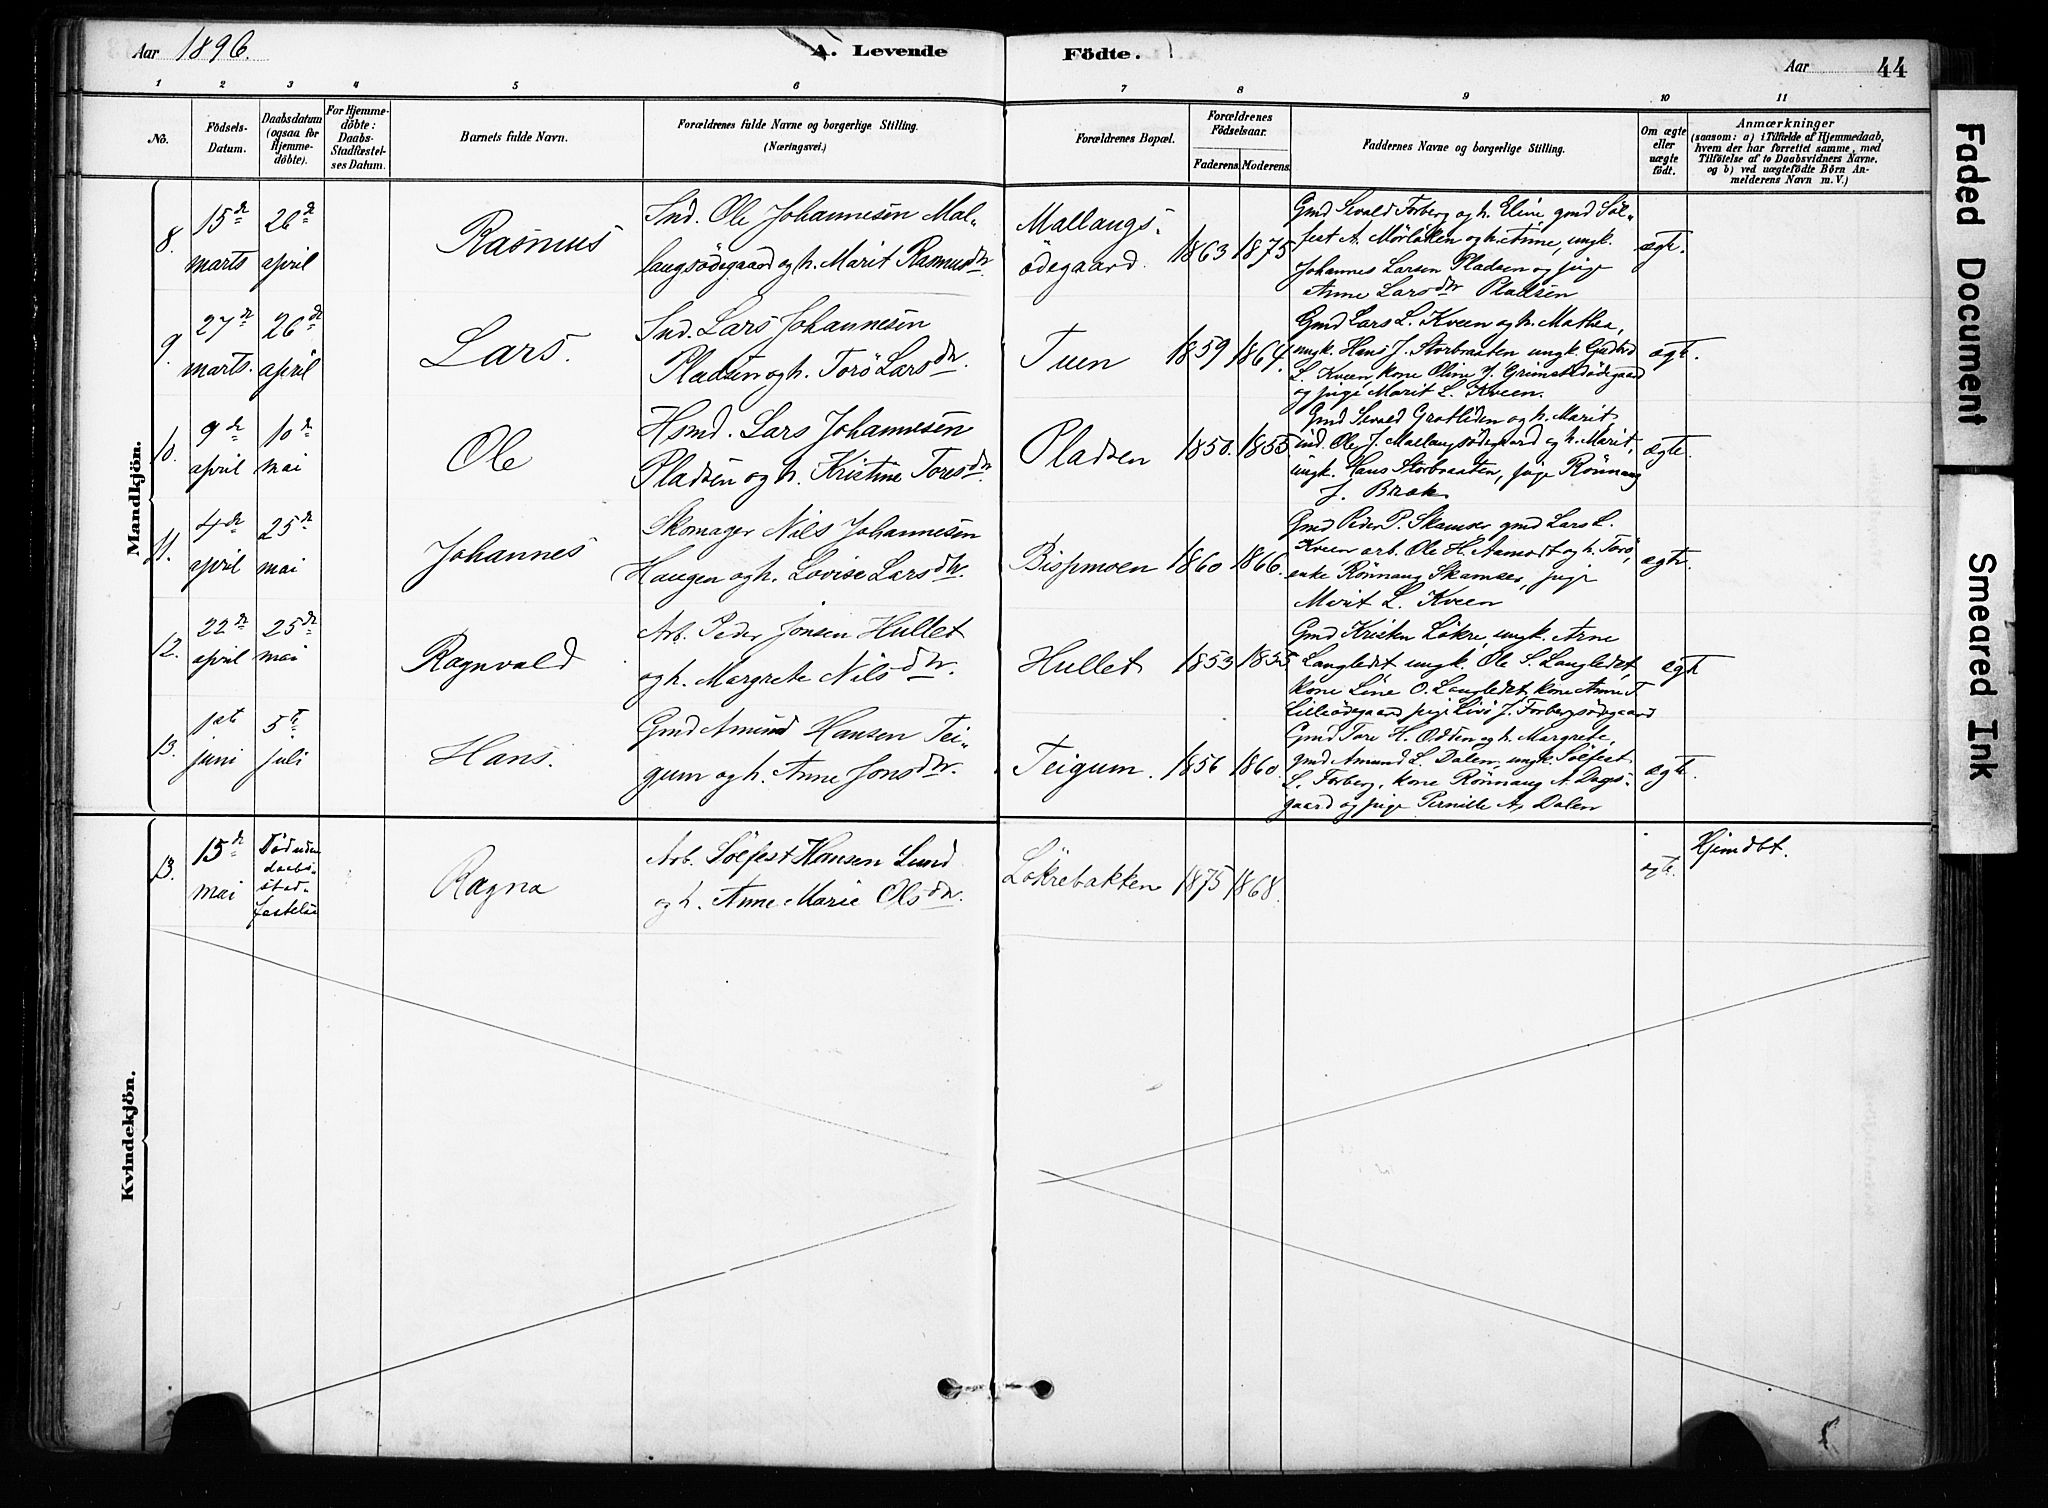 Aar 1896.
A. Levende Födte.
Aar 44
1 2 3 4 5 6 7 8 9 10 11
No.
Födsels-
Datum.
Daabsdatum
(ogsaa for
Hjemme-
döbte).
For Hjemme-
döbte:
Daabs-
Stadfæstel-
ses Datum.
Barnets fulde Navn.
Forældrenes fulde Navne og borgerlige Stilling.
(Næringsvei.)
Forældrenes Bopæl.
Forældrenes
Födselsaar.
Faderens. Moderens.
Faddernes Navne og borgerlige Stilling.
Om ægte
eller
uægte
födt.
Anmærkninger
(saasom: a) i Tilfælde af Hjemmedaab,
hvem der har forrettet samme, med
Tilföielse af to Daabsvidners Navne.
og b) ved uægtefödte Börn An-
melderens Navn m. V.)
Mandkjön.
8.
15de
marts
26de
april
Rasmus
Ind. Ole Johannesen Mal-
langsödegaard og h. Marit Rasmusdtr.
Mallangs-
ödegaard.
1863 1875
Gmd Sevald Forberg og h. Eline, gmd Söl-
fest A. Mörlöken og h. Anne, ungk.
Johannes Larsen Pladsen og pige
Anne Larsdtr Pladsen
ægt.
9.
27de
marts.
26de
april
Lars.
Ind. Lars Johannesen
Pladsen og h. Torö Larsdtr.
Tuen
1859 1864.
Gmd Lars L. Kveen og h. Mathea,
ungk. Hans J. Storbraaten ungk. Gudbrd
L. Kveen, kone Oline J. Grimstadödegaard
og pige Marit L. Kveen.
ægt.
10.
9de
april
10de
mai
Ole
Hsmd. Lars Johannesen
Pladsen og h. Kristine Toresdtr.
Pladsen
1850. 1855
Gmd Sevald Grotliden og h. Marit,
ind. Ole J. Mallangsödegaard og h. Marit,
ungk. Hans Storbraaten, pige Rönnaug
J. Brak
ægte.
11.
4de
april
25de
mai
Johannes
Skomager Nils Johannesen
Haugen og h. Lovise Larsdtr.
Bispmoen
1860 1866.
Gmd Peder P. Skamser gmd Lars L.
Kveen arb. Ole H. Aamodt og h. Torö,
enke Rönnaug Skamser, pige
Marit L. Kveen
ægte.
12.
22de
april
25de
mai
Ragnvald
Arb. Peder Jonsen Hullet
og h. Margrete Nilsdtr.
Hullet
1853 1855
Gmd Kristen Lökre, ungk. Arne
Langledet ungk. Ole S. Langledet,
kone Line O. Langledet, kone Anne T.
Lilleödegaard pige Livi J. Forbergsödegaard
ægt
13.
1ste
juni
5te
juli
Hans.
Gmd Amund Hansen Tei-
gum og h. Anne Jonsdtr.
Teigum.
1856 1860.
Gmd Tore H. Odden og h. Margrete,
gmd Amund L. Dalen, ungk. Sölfest
L. Forberg, kone Rönnaug A. Dags-
gaard og pige Pernille A. Dalen
ægt.
Kvindekjön.
13.
15de
mai
Död uden
daabs-
stad-
festelse
Ragna
Arb. Sölfest Hansen Lund
og h. Anne Marie Olsdtr.
Lökrebakken
1875 1868.
ægte.
Hjemdbt.
Faded Document
Smeared Ink